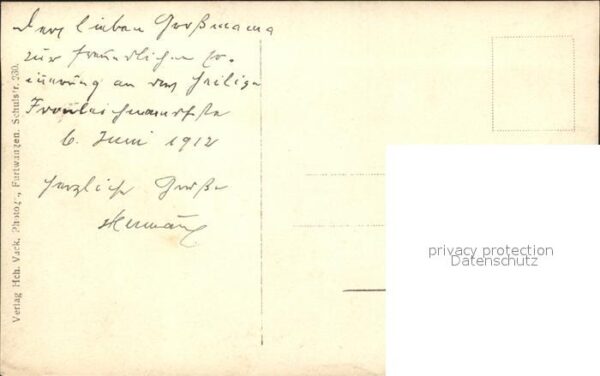 Der lieben Großmama
zur freundlichen Er-
innerung an das heilige
Fronleichnamsfest
6. Juni 1912
herzliche Grüße
Hermann
Verlag Hch. Vack, Photogr., Furtwangen, Schulstr. 230.
privacy protection
Datenschutz